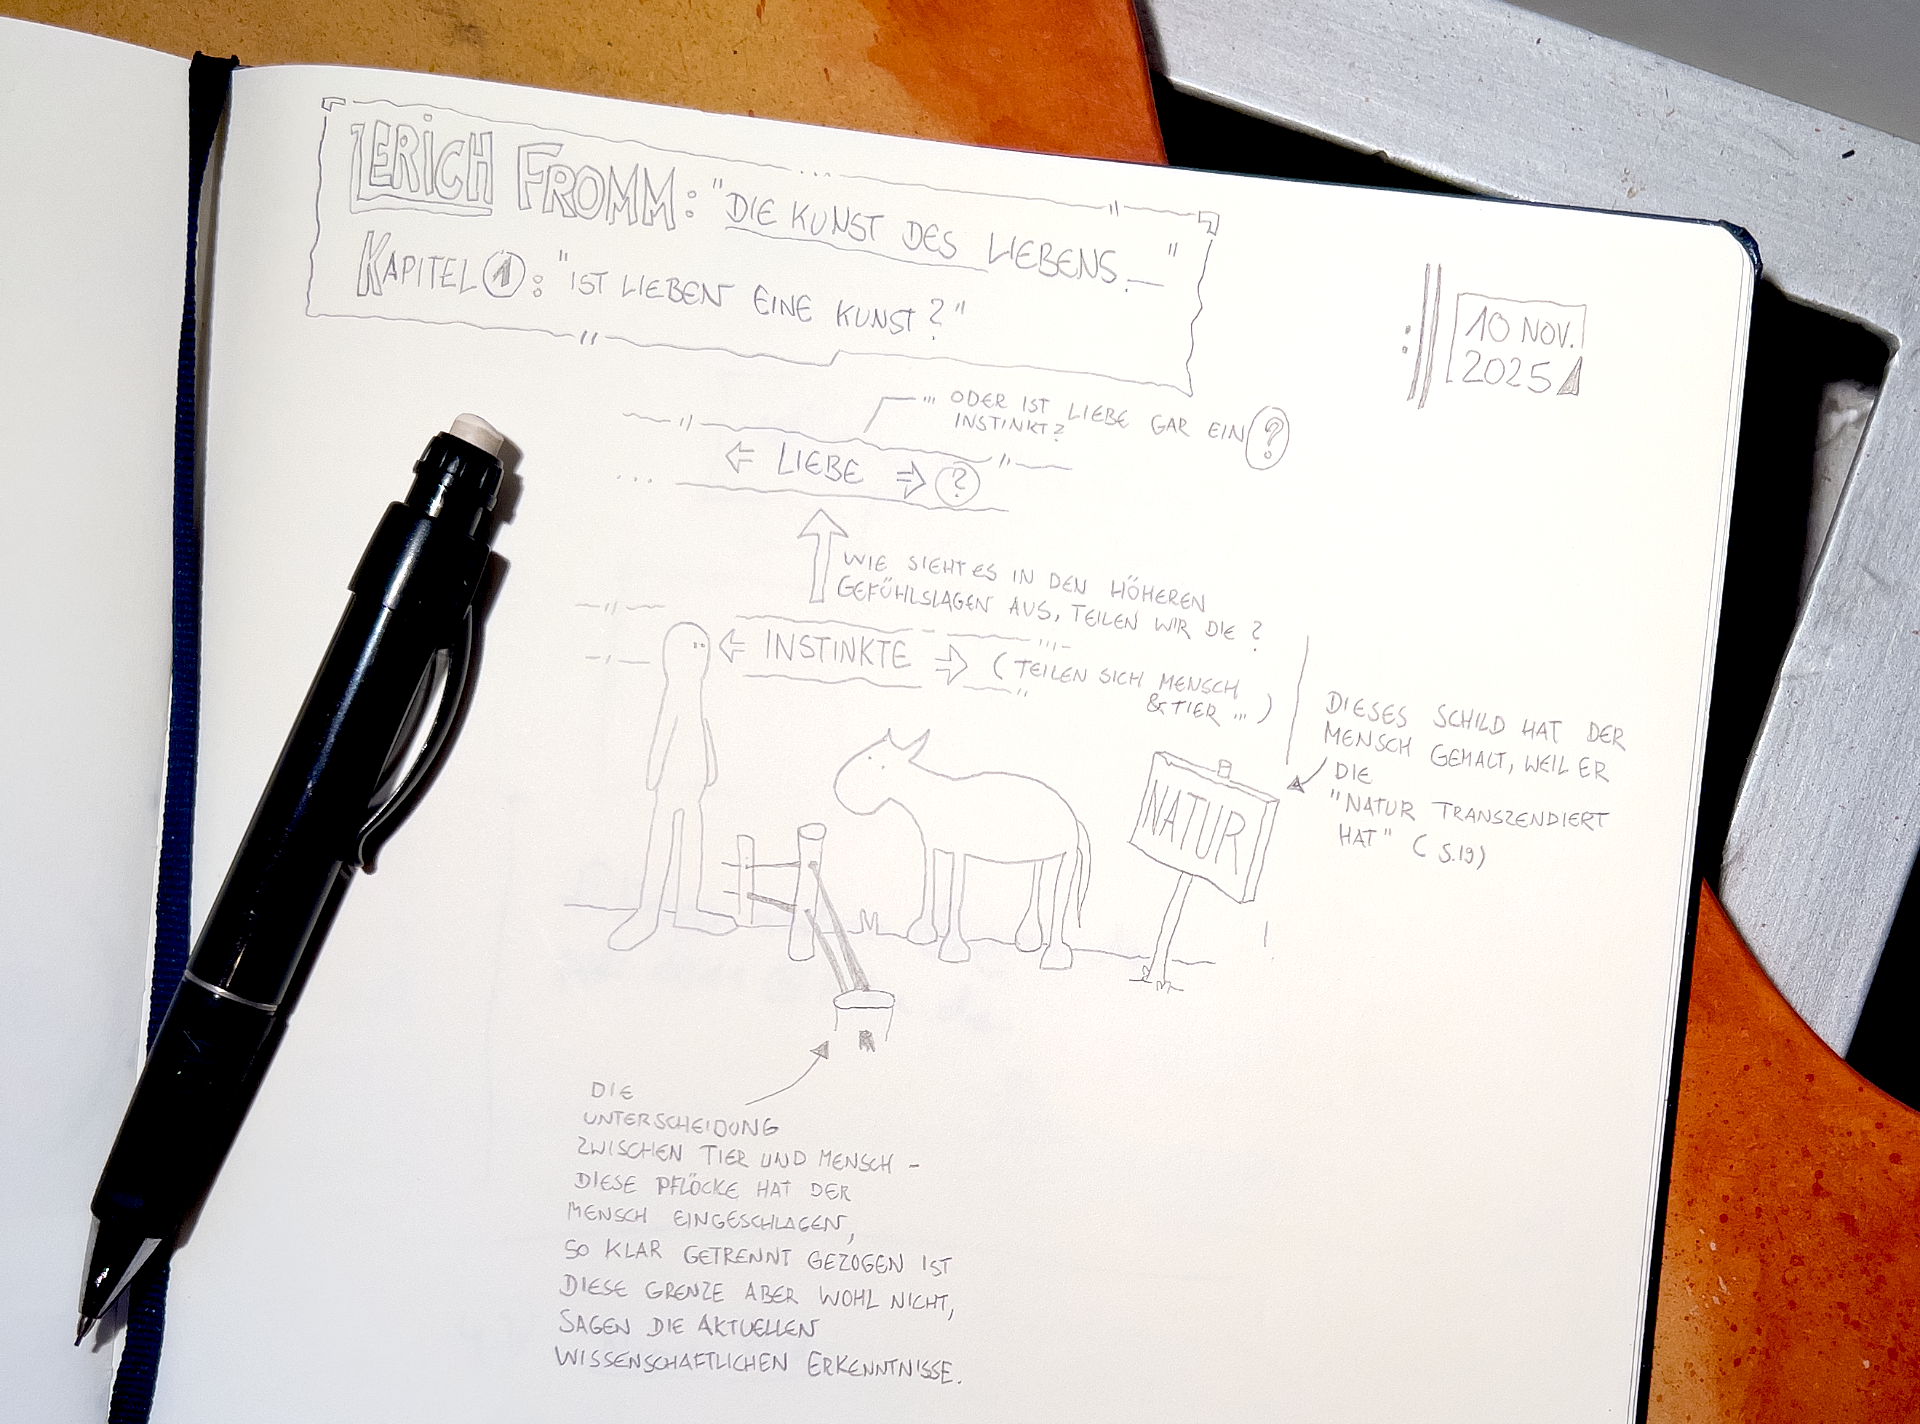 ERICH FROMM: "DIE KUNST DES LIEBENS."
KAPITEL 1: "IST LIEBEN EINE KUNST?"
10 NOV.
2025
... ODER IST LIEBE GAR EIN ?
INSTINKT?
⇐ LIEBE ⇒ ?
WIE SIEHT ES IN DEN HÖHEREN
GEFÜHLSLAGEN AUS, TEILEN WIR DIE ?
⇐ INSTINKTE ⇒ (TEILEN SICH MENSCH
& TIER ...)
DIESES SCHILD HAT DER
MENSCH GEMALT, WEIL ER
DIE
"NATUR TRANSZENDIERT
HAT" (S.19)
NATUR
R
DIE
UNTERSCHEIDUNG
ZWISCHEN TIER UND MENSCH –
DIESE PFLÖCKE HAT DER
MENSCH EINGESCHLAGEN,
SO KLAR GETRENNT GEZOGEN IST
DIESE GRENZE ABER WOHL NICHT,
SAGEN DIE AKTUELLEN
WISSENSCHAFTLICHEN ERKENNTNISSE.